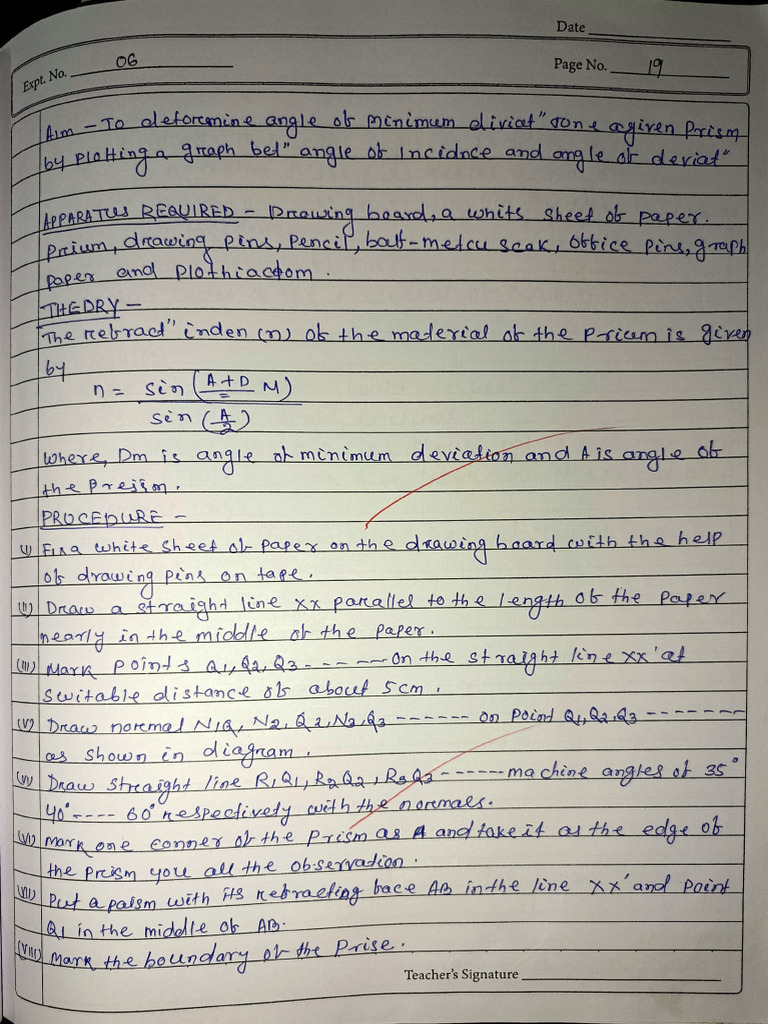 Date
Expt. No. 06
Page No. 19
Aim - To deforemine angle ob minimum diviat" one a given Prism
by Plotting a graph bet" angle ob Incidnce and angle ob deviat"
APPARATUS REQUIRED - Drawing board, a whits sheet ob paper.
Prium, drawing pins, Pencil, balf-metcu scak, obbice pins, graph
paper and Plothiactom.
THEORY -
The rebract" inden (n) ob the material ob the Prium is given
by
n = sin (A+D/= M) / sin (A/2)
where, Dm is angle ob minimum deviation and A is angle ob
the Preism.
PROCEDURE -
(i) Fixa white sheet ob paper on the drawing board with the help
ob drawing pins on tape.
(ii) Draw a straight line xx parallel to the length ob the paper
nearly in the middle ob the paper.
(iii) Mark points Q1, Q2, Q3 ------ on the straight line xx' at
switable distance ob about 5cm.
(v) Draw normal N1Q, N2, Q2, N3, Q3 ------ on point Q1, Q2, Q3 -------
as shown in diagram.
(v) Draw streaight line R1Q1, R2Q2, R3Q3 ------ machine angles of 35°
40° ---- 60° respectively with the normals.
(vi) Mark one conner ob the Prism as A and take it as the edge ob
the prcism you all the observation.
(vii) Put a paism with its rebracting bace AB in the line xx' and point
Q1 in the middle ob AB.
(viii) Mark the boundary ob the Prise.
Teacher's Signature